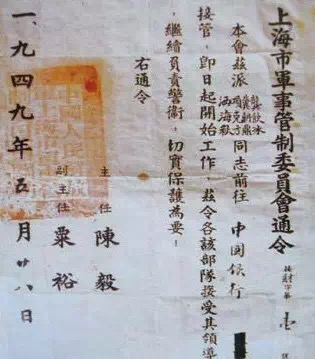 上海市軍事管制委員會通令
接財字第壹號
本會茲派
龔飲冰
冀朝鼎
項克方
同志前往中國銀行
接管,即日起開始工作,茲令各該部隊接受其領導
繼續負責警衛,切實保護為要!
右通令
主任 陳毅
副主任 粟裕
一、九四九年五月廿八日